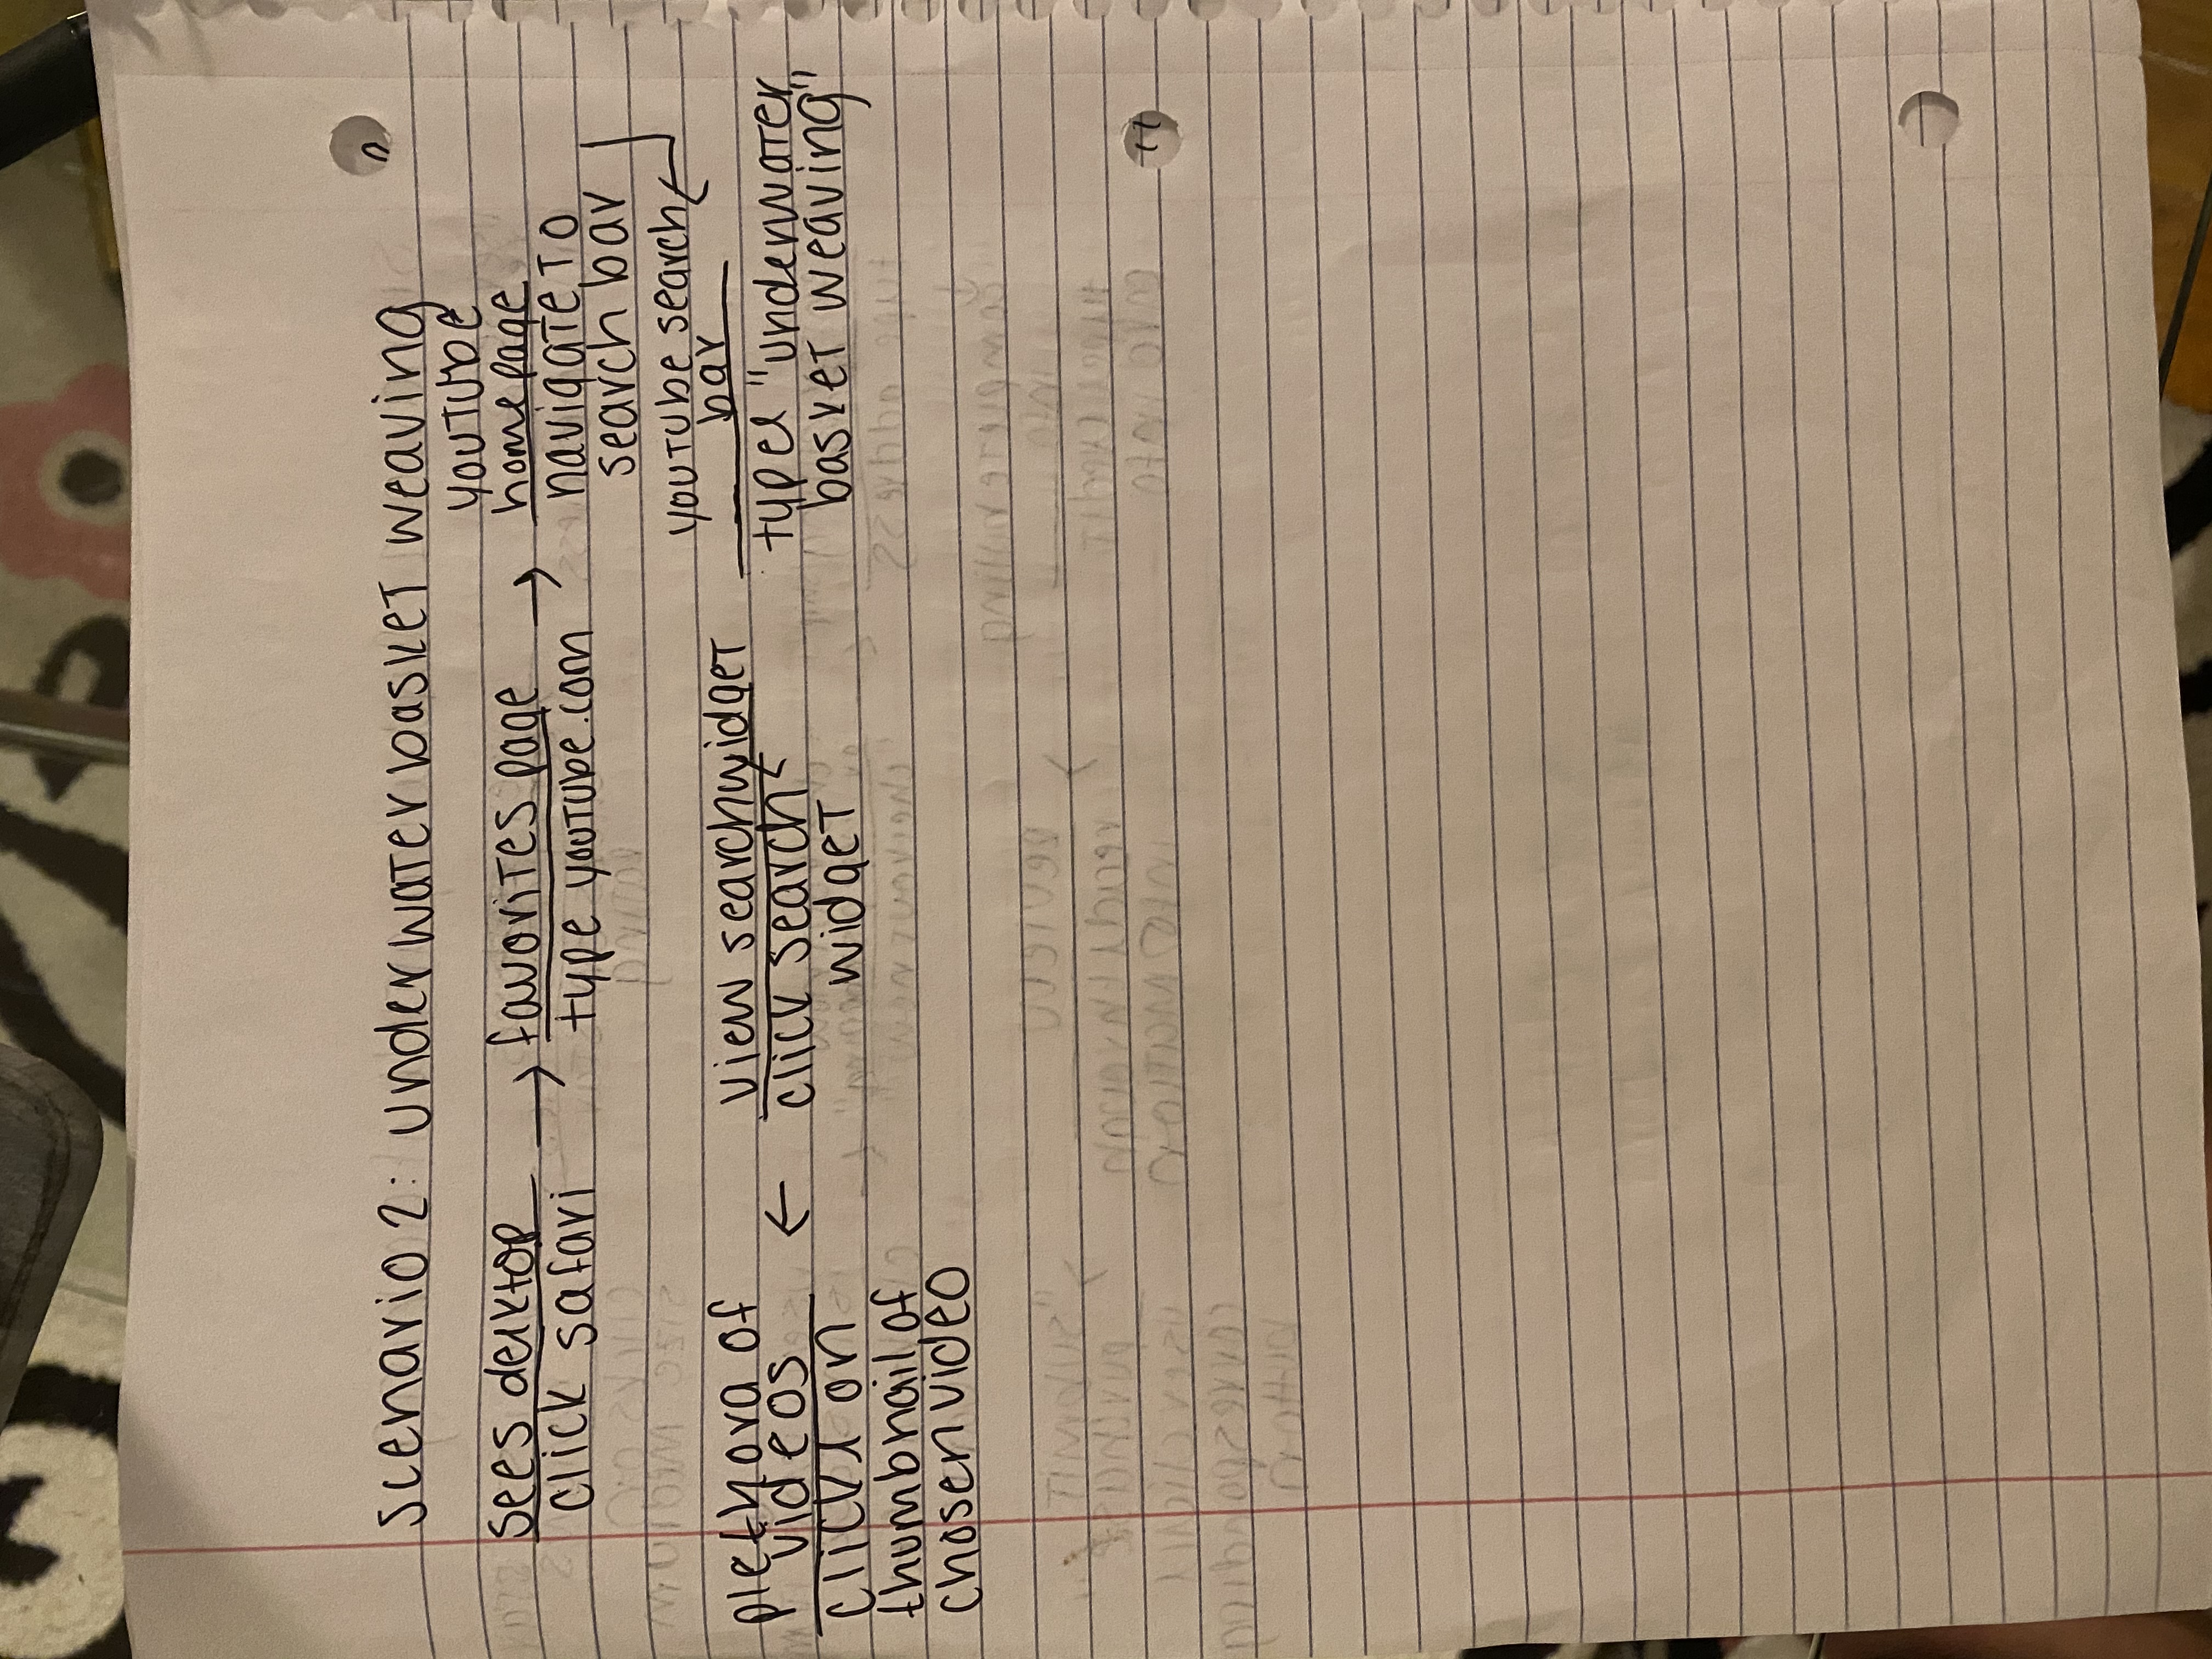 scenario 2: underwater basket weaving
sees desktop
click safari
→ favorites page
type youtube.com
→ youtube
homepage
navigate to
search bar
youtube search
bar
types "underwater
basket weaving"
view search widget
click search
widget
←
plethora of
videos
clicks on
thumbnail of
chosen video